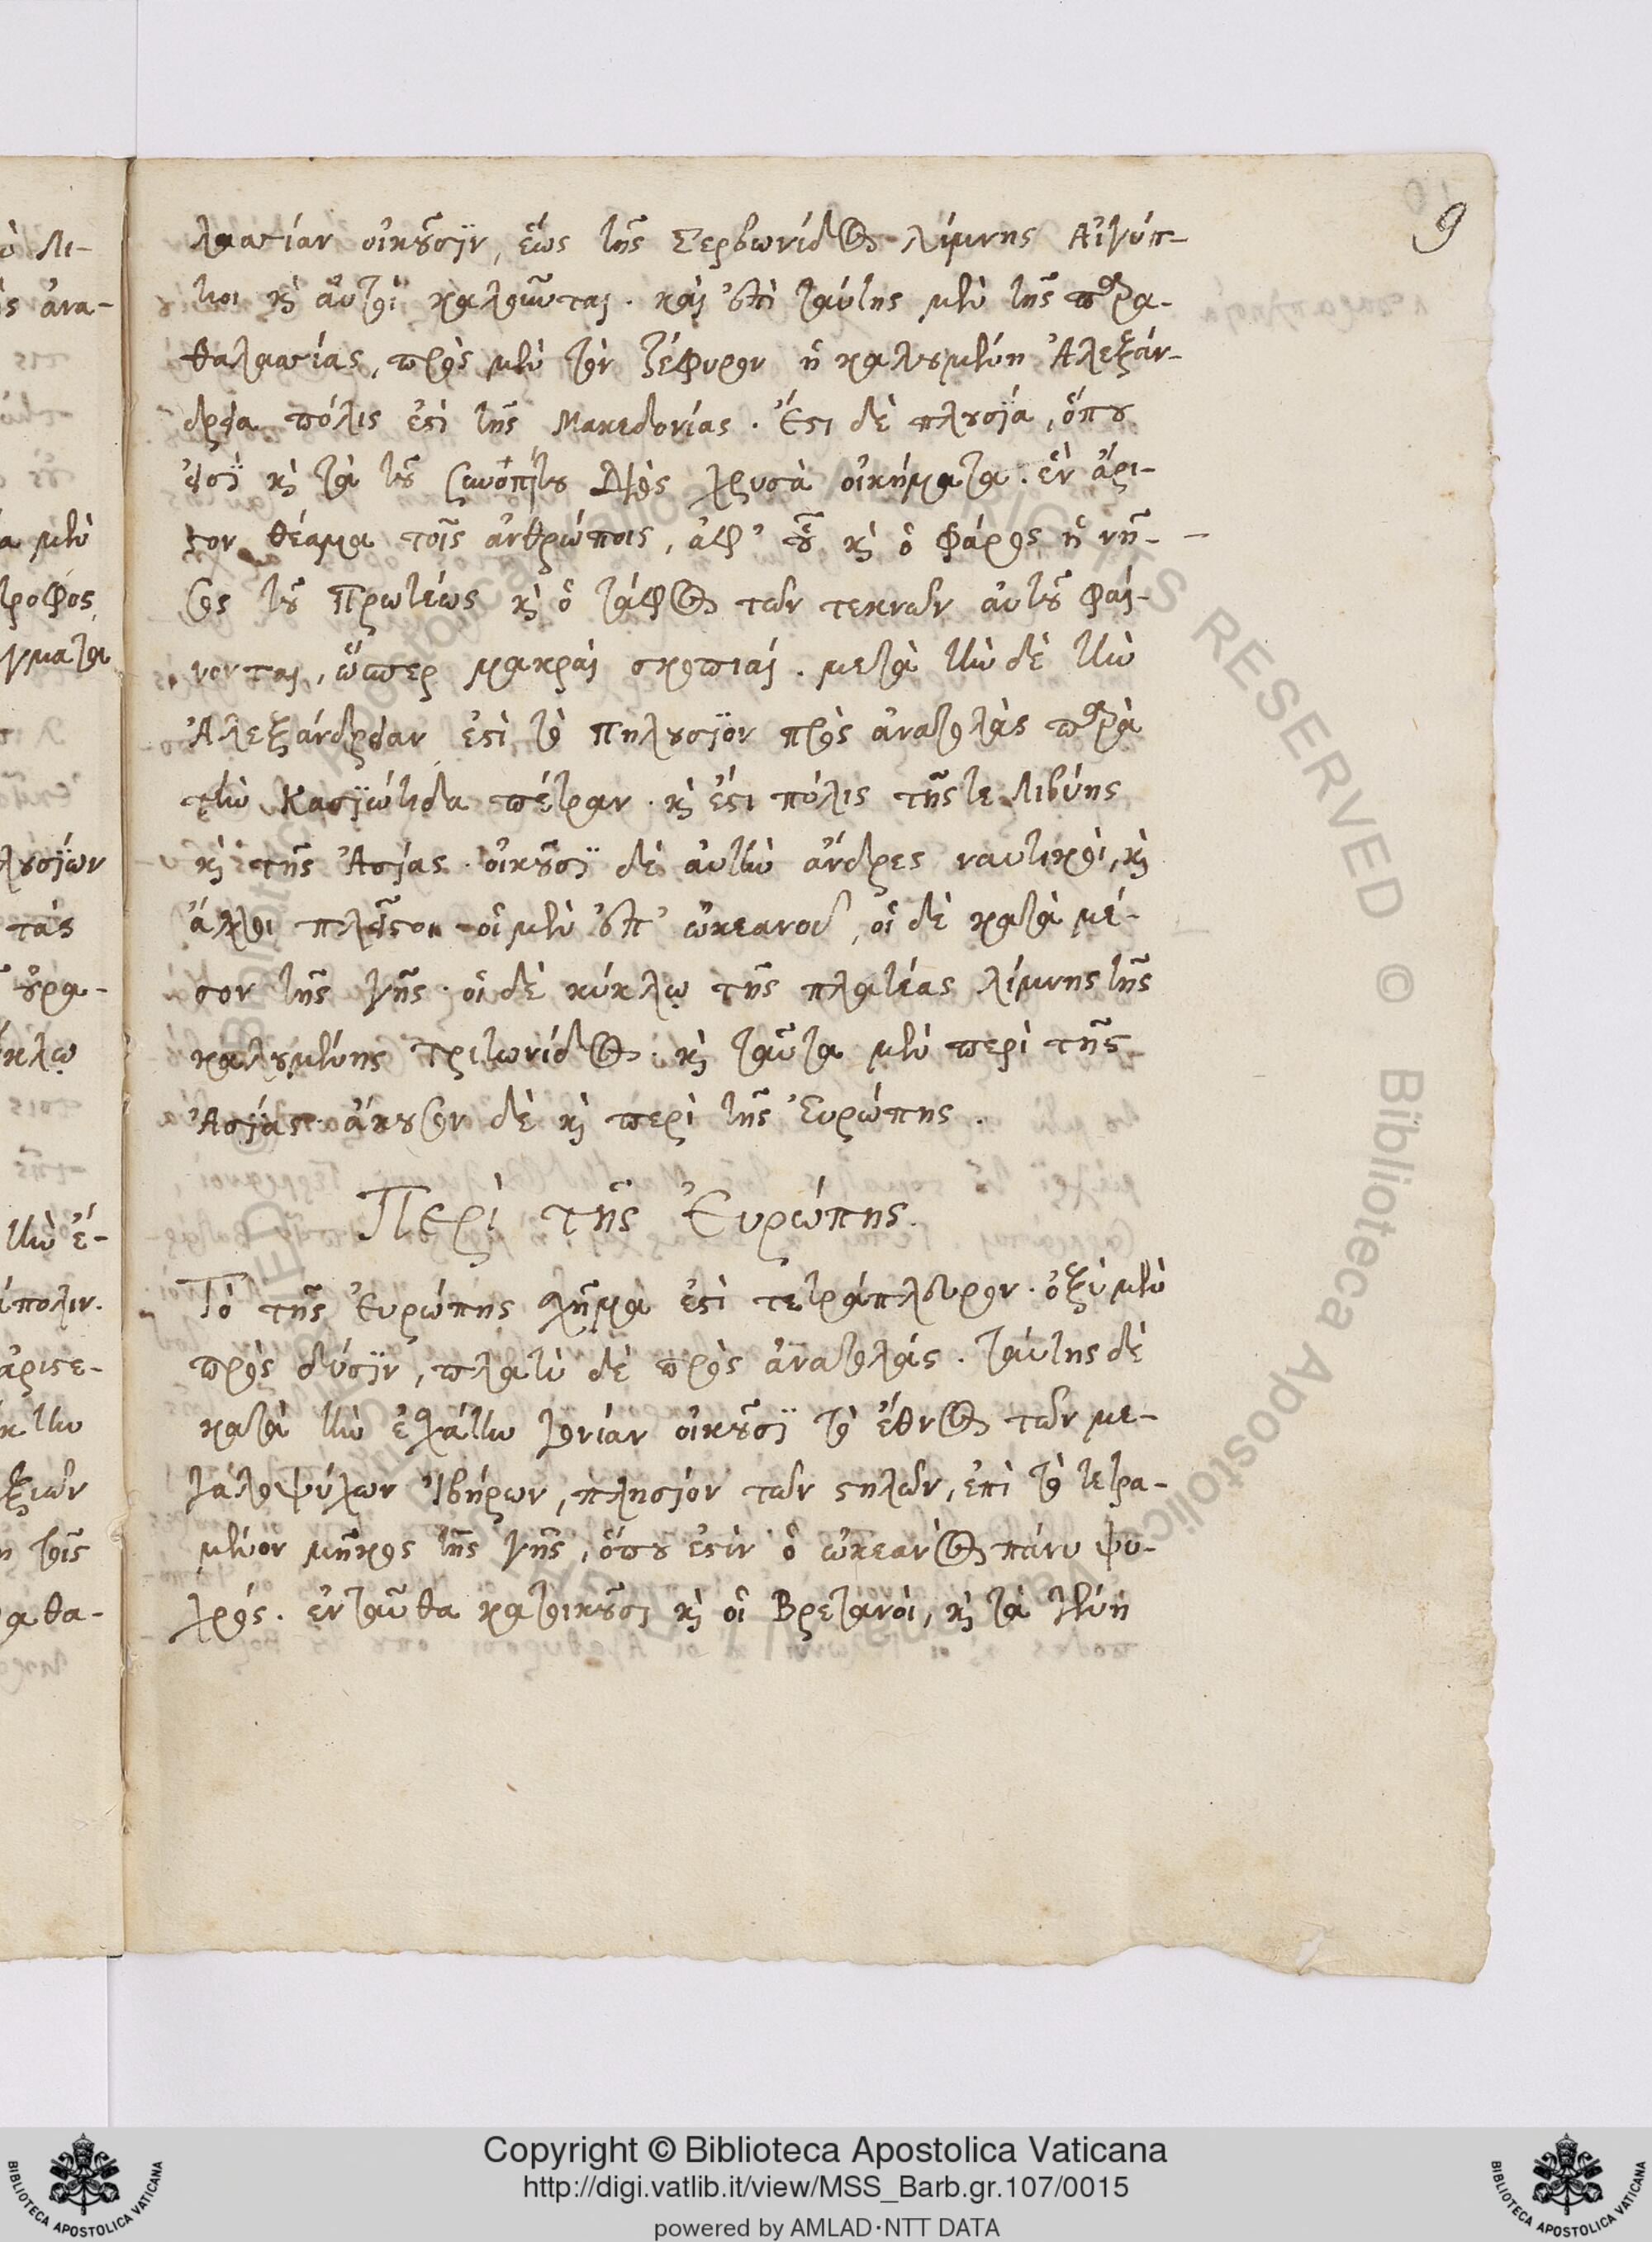 9
λασσίαν οἰκοῦσϊν, ἕως τῆς Σερβωνίδος λίμνης Αἰγύπ-
τιοι κὶ αὐτοὶ καλοῦνται. καὶ ἐπὶ ταύτης μὲν τῆς παρα-
θαλασσίας, πρὸς μὲν τὸν ζέφυρον ἡ καλουμένη Ἀλεξάν-
δρεια πόλις ἐστὶ τῆς Μακεδονίας. Ἔστι δὲ πλουσία, ὅπου
εἰσὶ κὶ τὰ τοῦ Διὸς χρυσὰ οἰκήματα. ἓν ἄρι-
στον θέαμα τοῖς ἀνθρώποις, ἀφ' οὗ κὶ ὁ Φάρος ἡ νῆ-
σος τοῦ Πρωτέως κὶ ὁ τάφος τῶν τεκνῶν αὐτοῦ φαί-
νονται, ὥσπερ μακραὶ σκοπιαί. μετὰ τὴν δὲ τὴν
Ἀλεξάνδρειαν ἐστὶ τὸ Πηλούσϊον πρὸς ἀνατολὰς παρὰ
τὴν Κασϊώτιδα πέτραν. κὶ ἔστι πόλις τῆς τε Λιβύης
κὶ τῆς Ἀσίας. οἰκοῦσϊ δὲ αὐτὴν ἄνδρες ναυτικοὶ, κὶ
ἄλλοι πλεῖστοι οἱ μὲν ἐπ' ὠκεανοῦ, οἱ δὲ κατὰ μέ-
σον τῆς γῆς. οἱ δὲ κύκλῳ τῆς πλατέας λίμνης τῆς
καλουμένης Τριτωνίδος. κὶ ταῦτα μὲν περὶ τῆς
Ἀσίας. ἄκουσον δὲ κὶ περὶ τῆς Εὐρώπης.
Περὶ τῆς Εὐρώπης.
Τὸ τῆς Εὐρώπης σχῆμα ἐστὶ τετράπλευρον. ὀξὺ μὲν
πρὸς δύσϊν, πλατὺ δὲ πρὸς ἀνατολάς. ταύτης δὲ
κατὰ τὴν ἐσχάτην γονίαν οἰκοῦσϊ τὸ ἔθνος τῶν με-
γαλοψύχων Ἰβήρων, πλησίον τῶν στηλῶν, ἐπὶ τὸ τετρα-
μένον μῆκος τῆς γῆς, ὅπου ἐστὶν ὁ ὠκεανὸς πάνυ ψυ-
χρός. ἐνταῦθα κατοικοῦσι κὶ οἱ Βρετανοὶ, κὶ τὰ γένη
Copyright © Biblioteca Apostolica Vaticana
http://digi.vatlib.it/view/MSS_Barb.gr.107/0015
powered by AMLAD·NTT DATA